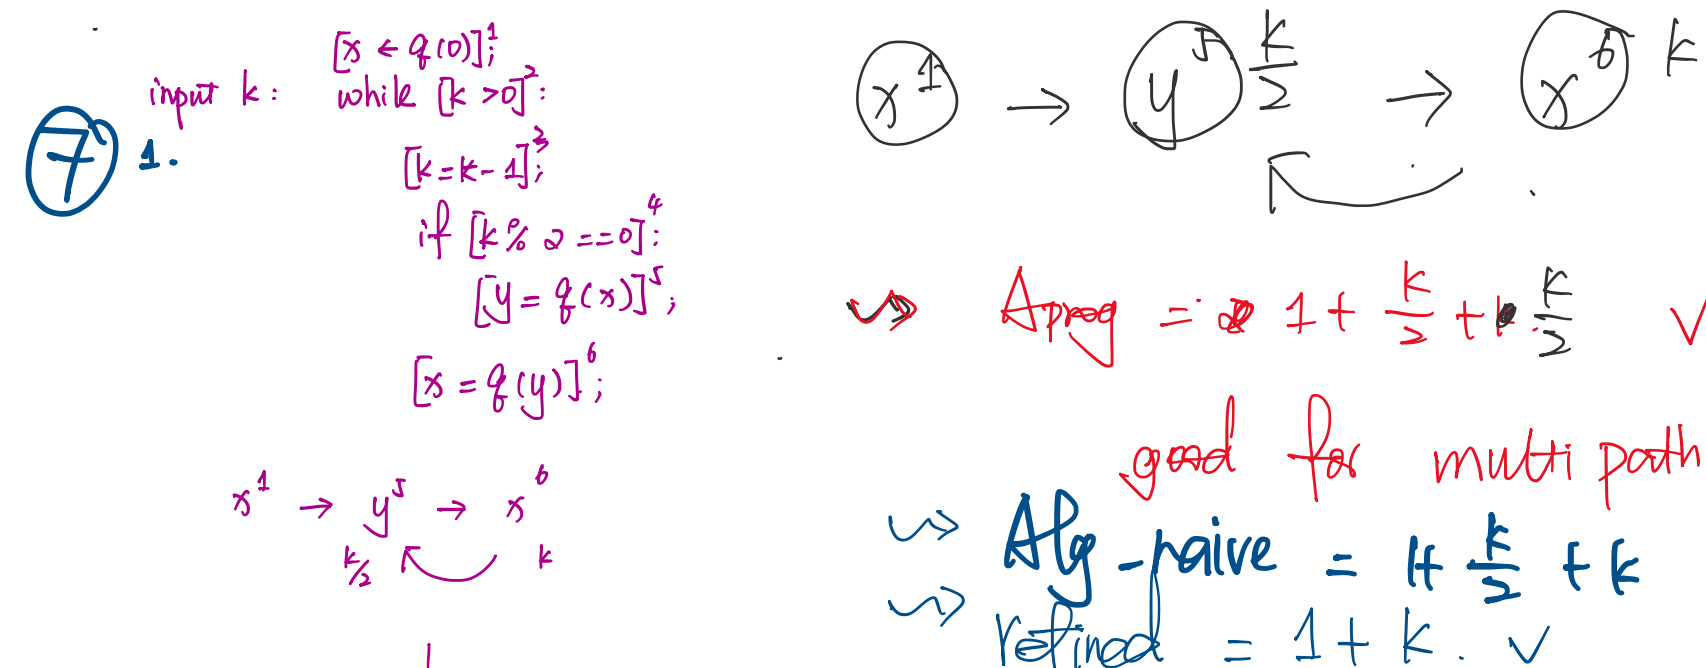 [x ← q(0)]¹;
input k: while [k >0]²:
⑦ 1.
[k = k - 1]³;
if [k % 2 == 0]⁴:
[y = q(x)]⁵;
[x = q(y)]⁶;
x¹ → y⁵ → x⁶
k/2 k
x¹ → y⁵ k/2 → x⁶ k
Aprog = 1 + k/2 + k/2 ✓
good for multi path
Alg-naive = 1 + k/2 + k
refined = 1 + k. ✓